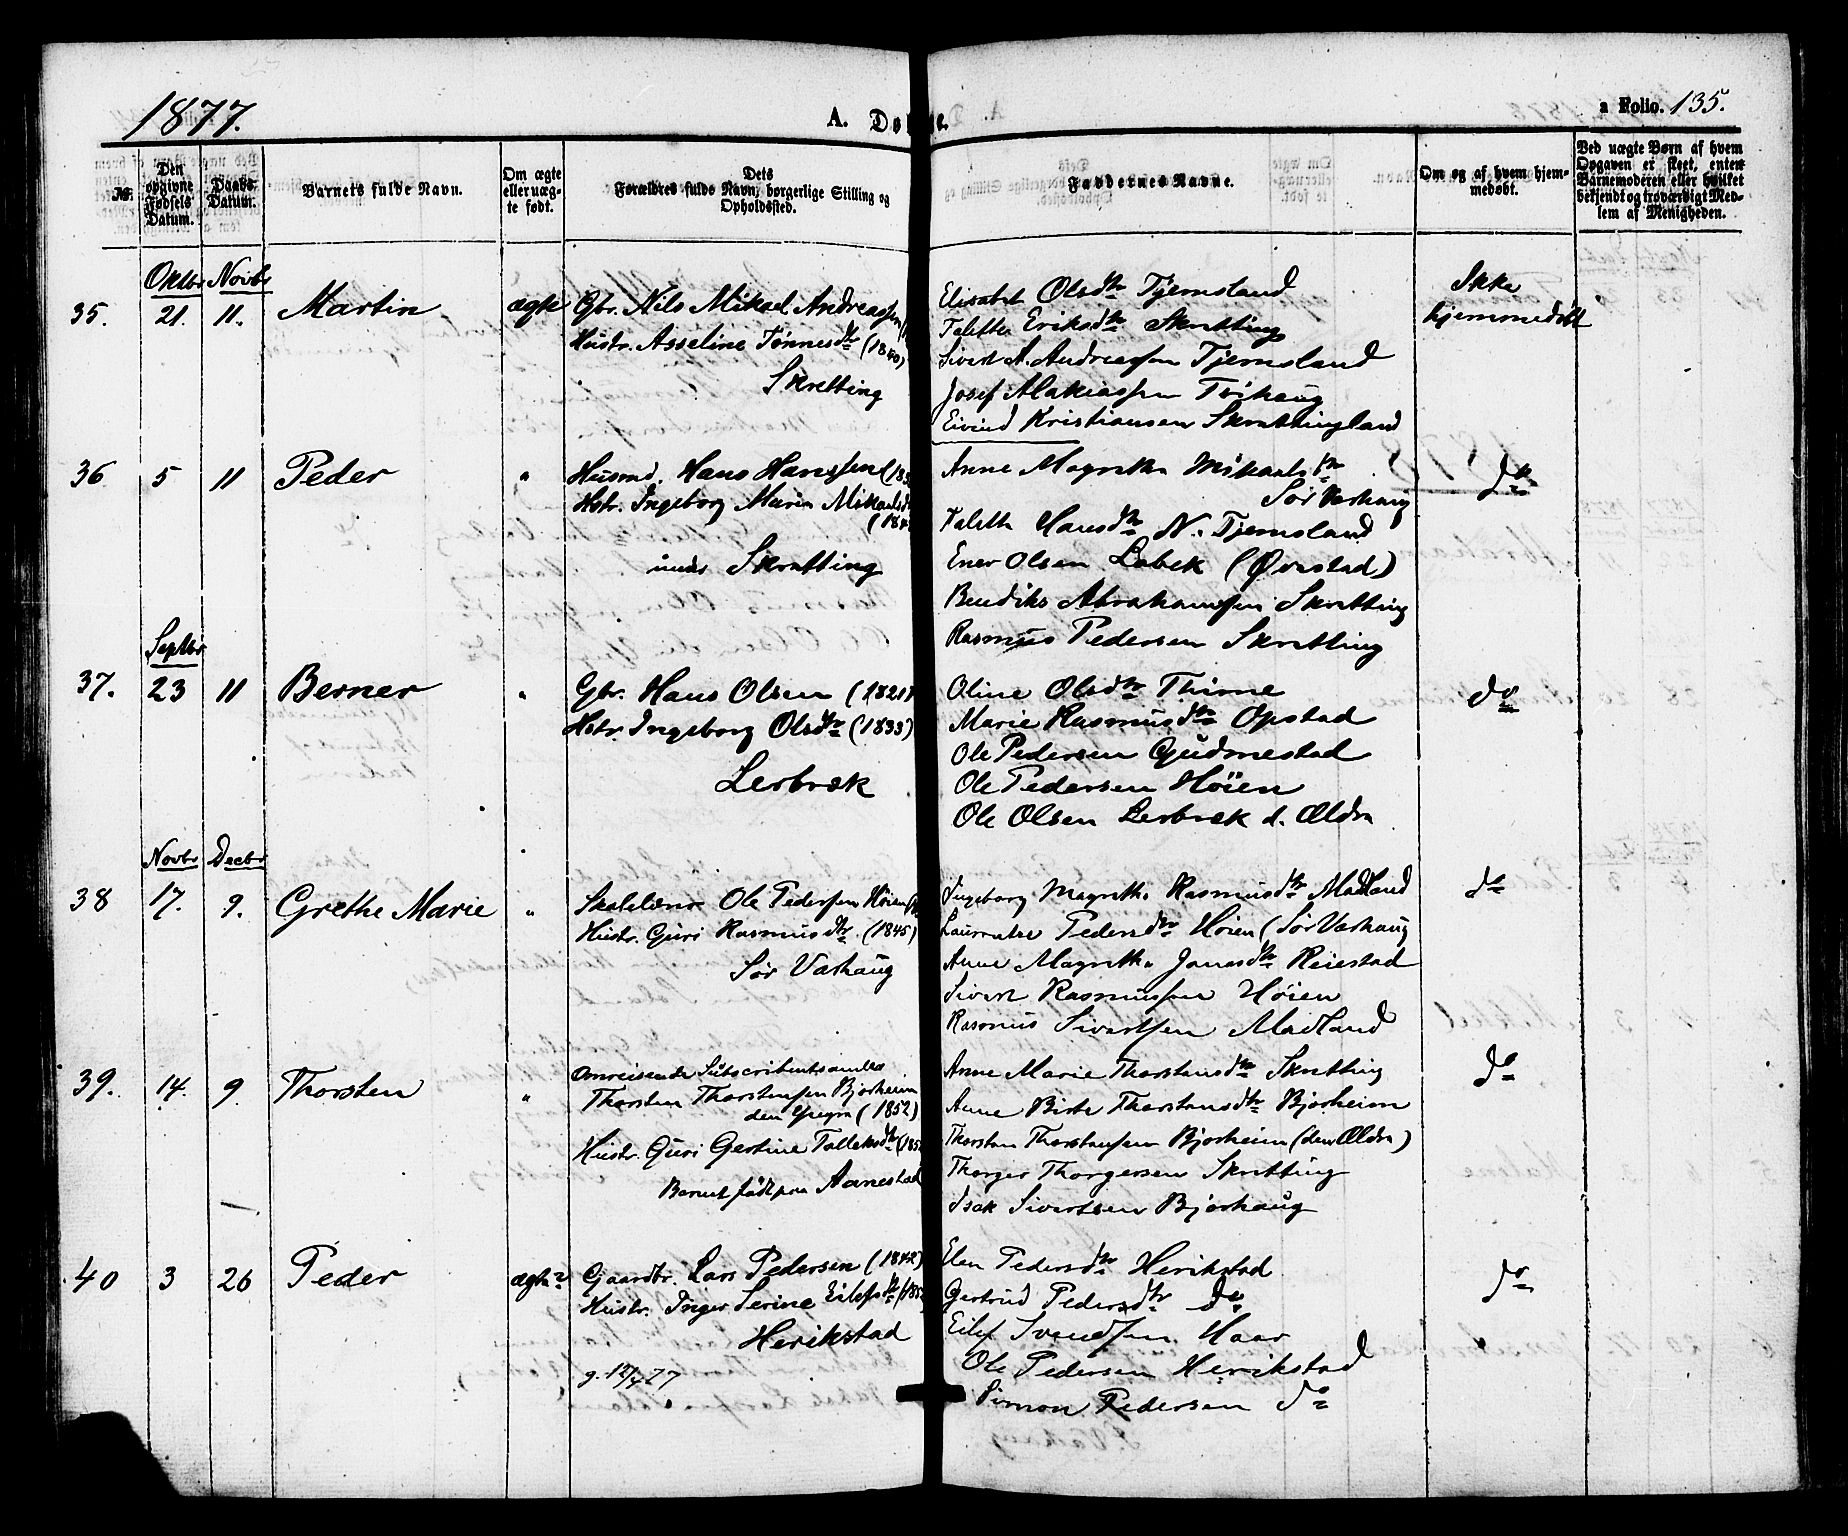 1877.
A. Døbte.
a Folio. 135.
№
Den opgivne Fødsels Datum.
Daabs Datum.
Barnets fulde Navn.
Om ægte eller uægte født.
Dets Forældres fulde Navn, borgerlige Stilling og Opholdssted.
Faddernes Navne.
Om og af hvem hjemmedøbt.
Ved uægte Børn af hvem Opgaven er skeet, enten Barnemoderen eller hvilket bekjendt og troværdigt Medlem af Menigheden.
Oktbr Novbr
35. 21. 11. Martin ægte
Gbr. Nils Mikael Andreassen
Hustr. Asseline Tønnesdtr (1840)
Skretting
Elisabet Olsdtr Tjemsland
Taletta Eriksdtr Skretting
Sivert A. Andreassen Tjemsland
Josef Malkiassen Tvihaug
Eivind Kristiansen Skrettingland
Ikke
hjemmedøbt
36 5 11 Peder "
Husmd. Hans Hanssen (183
Hstr. Ingeborg Maria Mikaelsdtr
(184
under Skretting
Anne Magrethe Mikaelsdtr
Sør Varhaug
Taletta Hansdtr N. Tjemsland
Ener Olsen Lobek (Øvestad)
Bendiks Abrahamsen Skretting
Rasmus Pedersen Skretting
do
Septbr
37. 23 11 Berner "
Gbr. Hans Olsen (1821)
Hstr. Ingeborg Olsdtr (1833)
Lerbræk
Oline Olsdtr Thime
Marie Rasmusdtr Opstad
Ole Pedersen Gudmestad
Ole Pedersen Høien
Ole Olsen Lerbræk d. Ældra
do
Novbr Decbr
38 17. 9. Grethe Marie "
Skolelærer Ole Pederssen Høien
Hustr. Guri Rasmusdtr (1845)
Sør Varhaug
Ingeborg Magrethe Rasmusdtr Madland
Pedersdtr Høien (Sør Varhaug
Anne Magrethe Jonasdtr Reiestad
Sivert Rasmussen Høien
Rasmus Sivertsen Madland
do
39. 14. 9 Thorsten "
Omreisende Subscribentsamler
Thorsten Thorstensen Bjorheim
den yngra (1852)
Hustr. Guri Gertine Tolleksdtr (185
Barnet født paa Aanestad
Anne Marie Thorstensdtr Skretting
Anne Birte Thorstensdtr Bjorheim
Thorsten Thorstensen Bjorheim (den Ældra)
Thorger Thorgersen Skretting
Isak Sivertsen Bjorhaug
do
40 3 26 Peder ægte
Gaardbr. Lars Pedersen (1842)
Hustr. Inger Serine Eilefsdtr (185
Herikstad
g. 12/4 77
Elen Pedersdtr Herikstad
Gertrud Pedersdtr do
Eilef Svendsen Haar
Ole Pedersen Herikstad
Simon Pedersen do
do